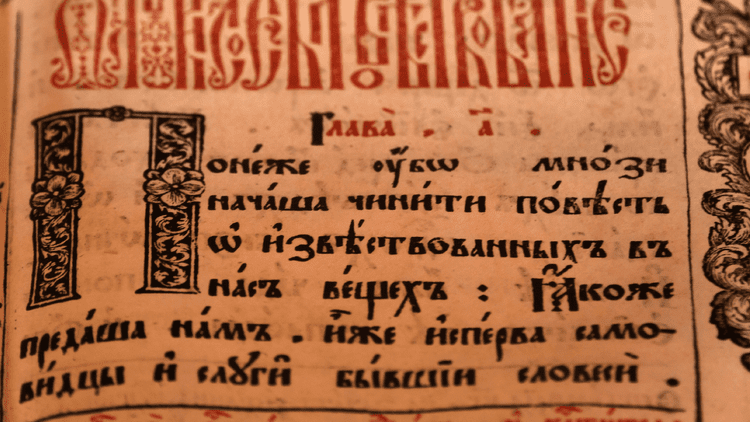 Глава̀ . а҃ .
Поне́же ᲂу҆́бѡ мно́зи
нача́ша чини́ти по́вѣсть
ѡ҆ и҆звѣ́ствованныхъ въ
на́съ ве́щехъ : Ꙗ҆́коже
преда́ша на́мъ . и҆̀же и҆спе́рва само-
ви́дцы и҆ слꙋги̑ бы́вшїи словесѝ .